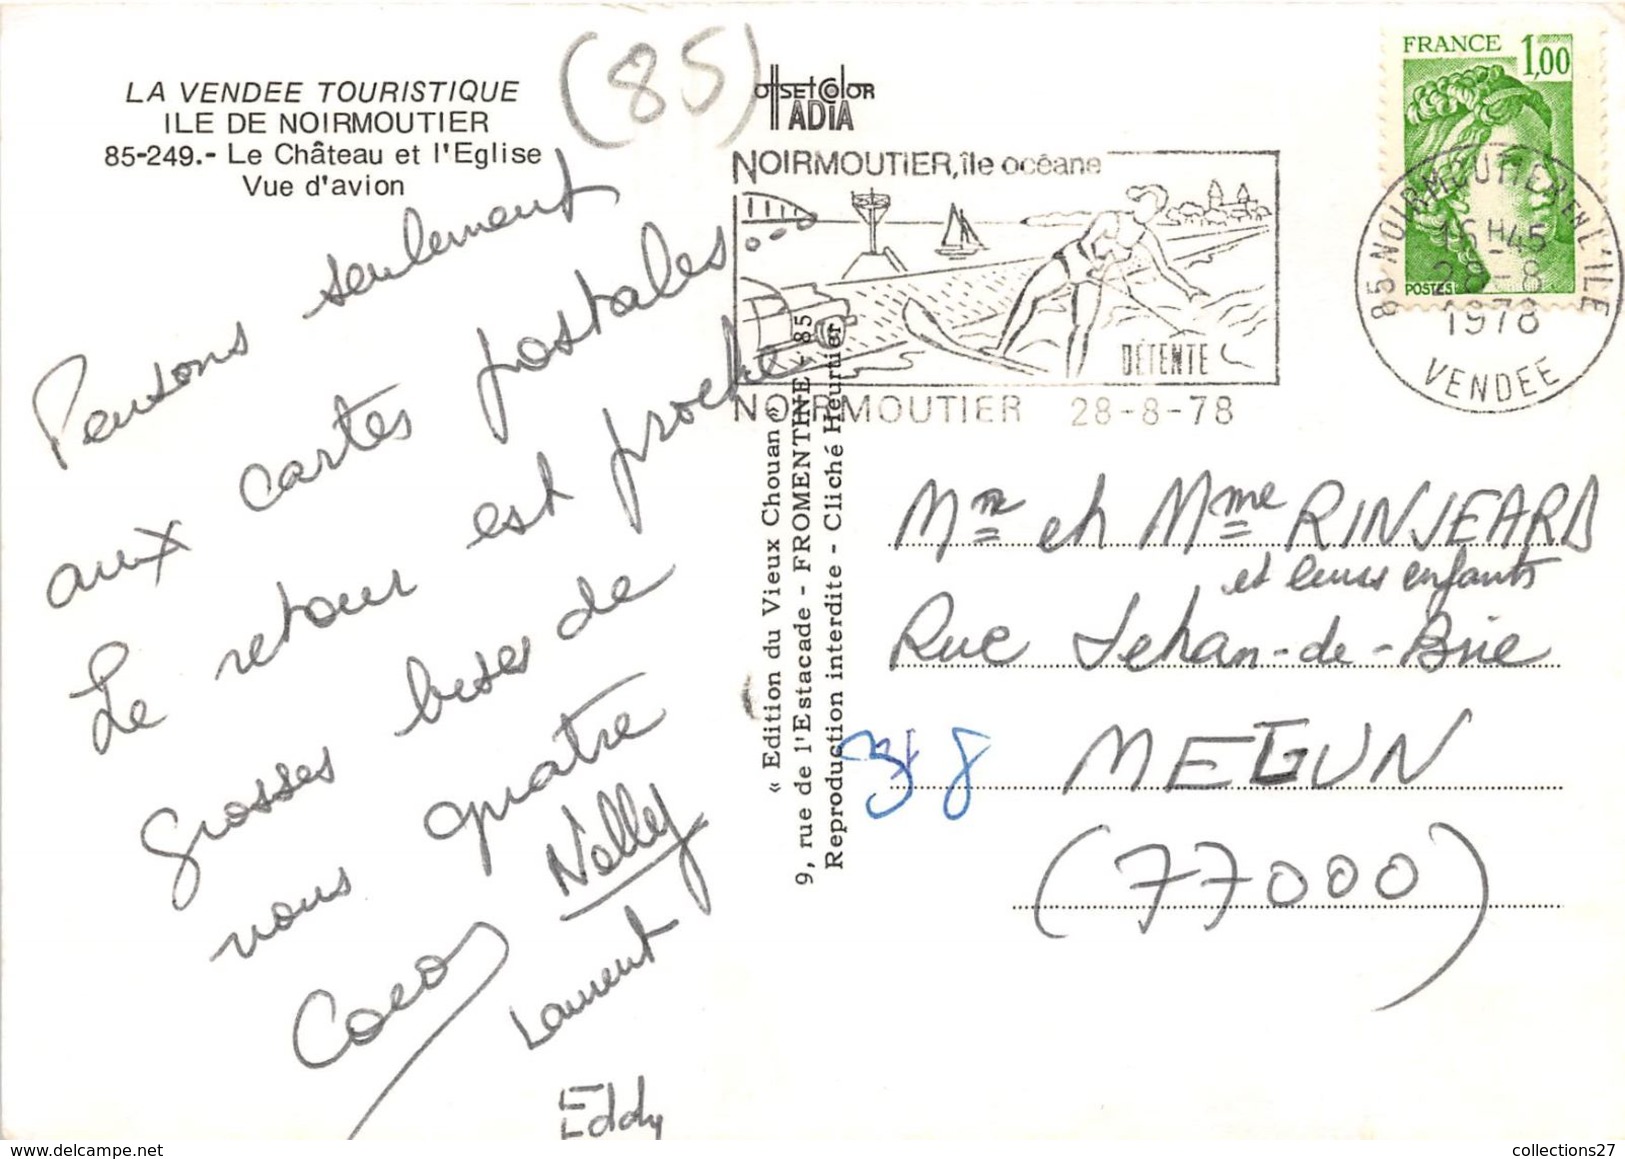 LA VENDEE TOURISTIQUE
ILE DE NOIRMOUTIER
85-249.- Le Château et l'Eglise
Vue d'avion
(85)
Offset Color
IADIA
FRANCE 1,00
POSTES
NOIRMOUTIER, île océane
DÉTENTE
NOIRMOUTIER 28-8-78
85 NOIRMOUTIER EN L'ILE
16 H 45
28-8
1978
VENDEE
Pensons seulement
aux cartes postales
Le retour est proche
grosses bises de
nous quatre
Nelly
Coco
Laurent
Eddy
« Edition du Vieux Chouan »
9, rue de l'Estacade - FROMENTINE - 85
Reproduction interdite - Cliché Heurtier
Mr et Mme RINJEARD
et leurs enfants
Rue Jehan-de-Brie
MELUN
(77000)
collections27